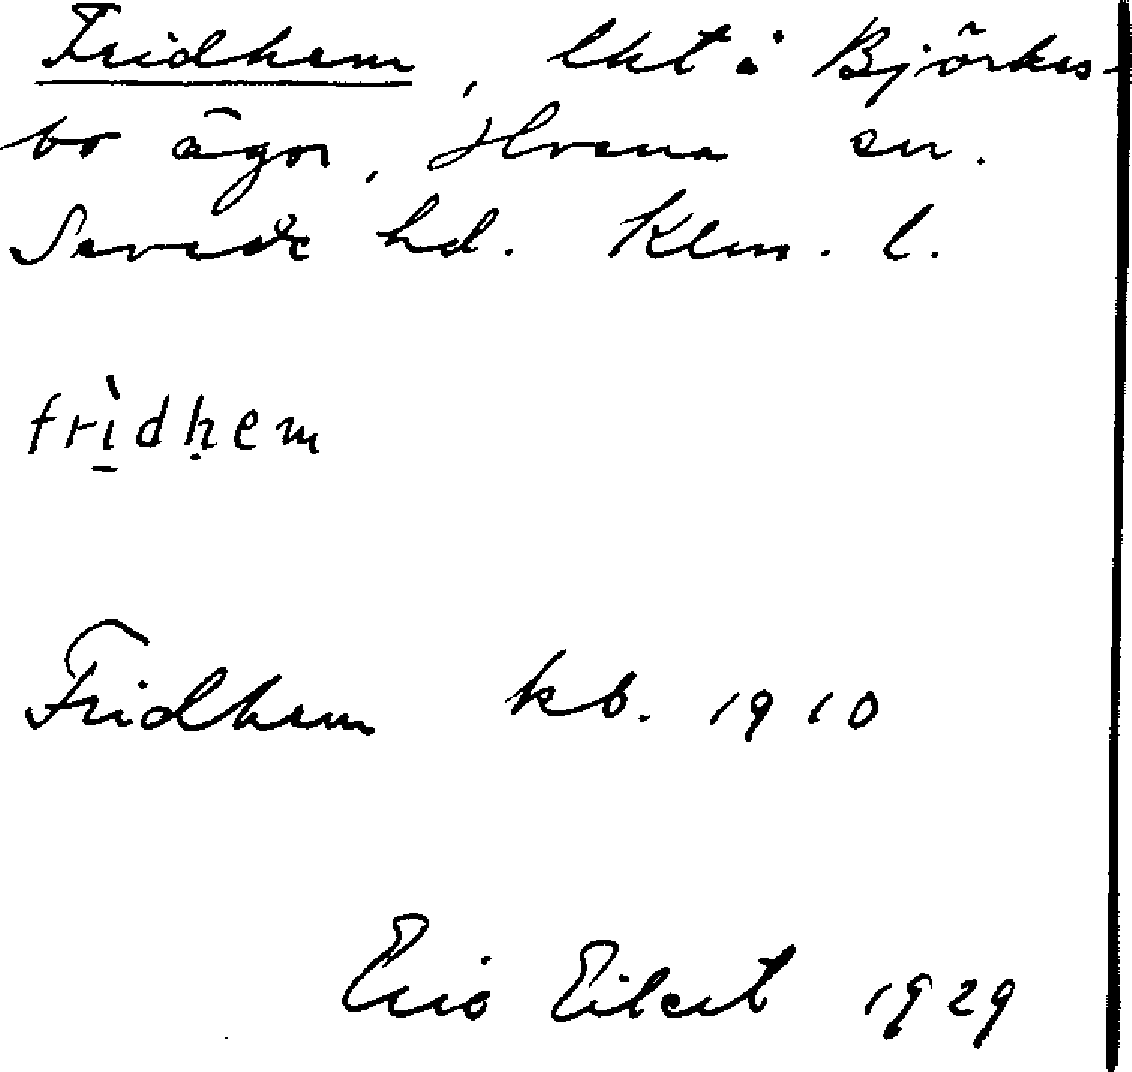 Fridhem, lht å Björkes-
bo ägor, Hvena sn.
Sevede hd. Klm. l.
frì̱dḥem
Fridhem kb. 1910
Eric Eilert 1929